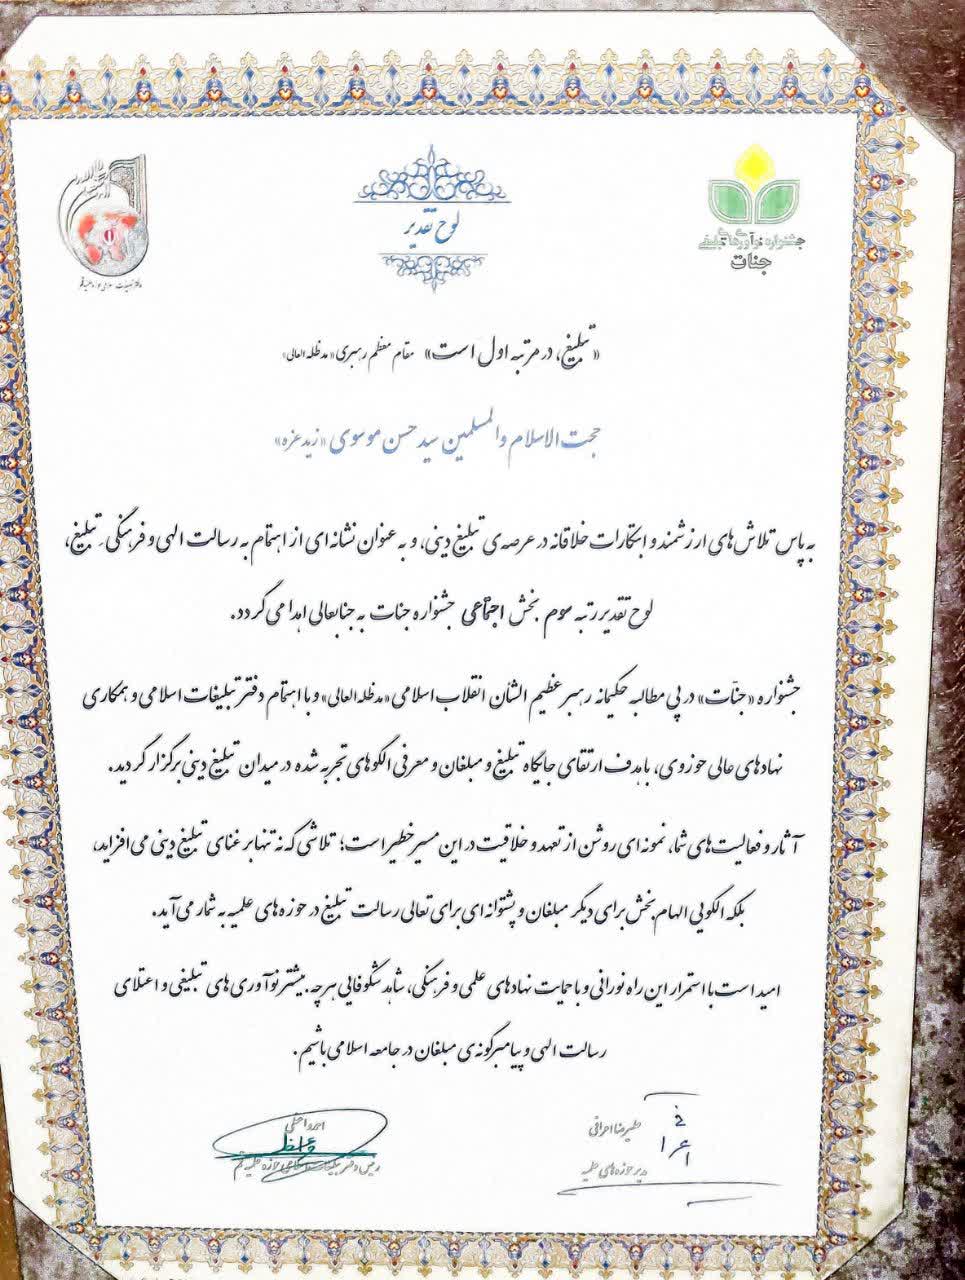 جشنواره نوآوری‌های تبلیغی
جنات
لوح تقدیر
دفتر تبلیغات اسلامی حوزه علمیه قم
«تبلیغ، در مرتبه اول است» مقام معظم رهبری «مدظله العالی»
حجت الاسلام والمسلمین سید حسن موسوی «زید عزه»
به پاس تلاش‌های ارزشمند و ابتکارات خلاقانه در عرصه‌ی تبلیغ دینی، و به عنوان نشانه‌ای از اهتمام به رسالت الهی و فرهنگی تبلیغ،
لوح تقدیر رتبه سوم بخش اجتماعی جشنواره جنات به جنابعالی اهدا می‌گردد.
جشنواره «جنّات» در پی مطالبه حکیمانه رهبر عظیم الشأن انقلاب اسلامی «مدظله العالی» و با اهتمام دفتر تبلیغات اسلامی و همکاری
نهادهای عالی حوزوی، با هدف ارتقای جایگاه تبلیغ و مبلغان و معرفی الگوهای تجربه شده در میدان تبلیغ دینی برگزار گردید.
آثار و فعالیت‌های شما، نمونه‌ای روشن از تعهد و خلاقیت در این مسیر خطیر است؛ تلاشی که نه تنها بر غنای تبلیغ دینی می‌افزاید،
بلکه الگویی الهام‌بخش برای دیگر مبلغان و پشتوانه‌ای برای تعالی رسالت تبلیغ در حوزه‌های علمیه به شمار می‌آید.
امید است با استمرار این راه نورانی و با حمایت نهادهای علمی و فرهنگی، شاهد شکوفایی هرچه بیشتر نوآوری‌های تبلیغی و اعتلای
رسالت الهی و پیامبرگونه‌ی مبلغان در جامعه اسلامی باشیم.
علیرضا اعرافی
مدیر حوزه‌های علمیه
احمد واعظی
رئیس دفتر تبلیغات اسلامی حوزه علمیه قم